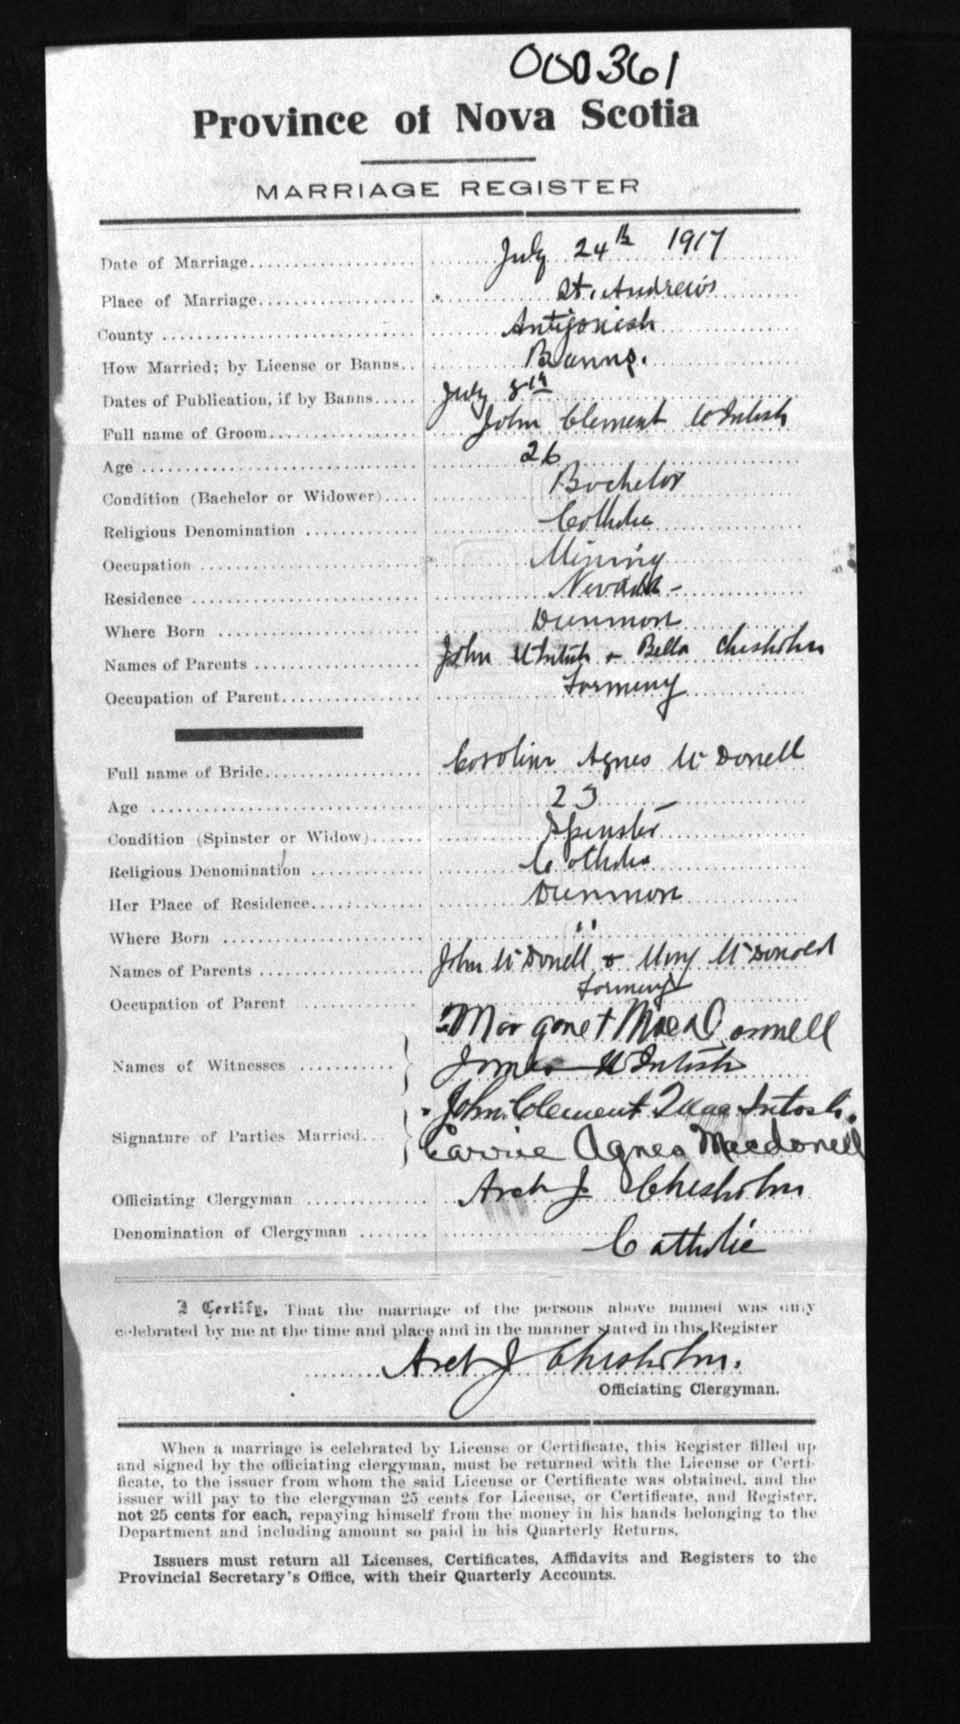 000361
Province of Nova Scotia
MARRIAGE REGISTER
Date of Marriage.................... July 24th 1917
Place of Marriage.................. St. Andrews
County ............................. Antigonish
How Married; by License or Banns.. Banns.
Dates of Publication, if by Banns..... July 8th
Full name of Groom................. John Clement McIntosh
Age ................................ 26
Condition (Bachelor or Widower).... Bachelor
Religious Denomination ............. Catholic
Occupation ......................... Mining
Residence .......................... Nevada -
Where Born ........................ Dunmore
Names of Parents .................. John McIntosh & Bella Chisholm
Occupation of Parent............... Farming
Full name of Bride.................. Caroline Agnes McDonell
Age ................................ 23
Condition (Spinster or Widow)...... Spinster
Religious Denomination ............ Catholic
Her Place of Residence............. Dunmore
Where Born ....................... "
Names of Parents .................. John McDonell & Mary McDonald
Occupation of Parent .............. Farming
Margaret MacDonnell
Names of Witnesses ............
James McIntosh
John Clement MacIntosh.
Signature of Parties Married...
Carrie Agnes Macdonell
Officiating Clergyman ............. Arch J. Chisholm
Denomination of Clergyman ........ Catholic
I Certify, That the marriage of the persons above named was duly
celebrated by me at the time and place and in the manner stated in this Register
Arch J Chisholm.
Officiating Clergyman.
When a marriage is celebrated by License or Certificate, this Register filled up
and signed by the officiating clergyman, must be returned with the License or Certi-
ficate, to the issuer from whom the said License or Certificate was obtained, and the
issuer will pay to the clergyman 25 cents for License, or Certificate, and Register,
not 25 cents for each, repaying himself from the money in his hands belonging to the
Department and including amount so paid in his Quarterly Returns.
Issuers must return all Licenses, Certificates, Affidavits and Registers to the
Provincial Secretary's Office, with their Quarterly Accounts.